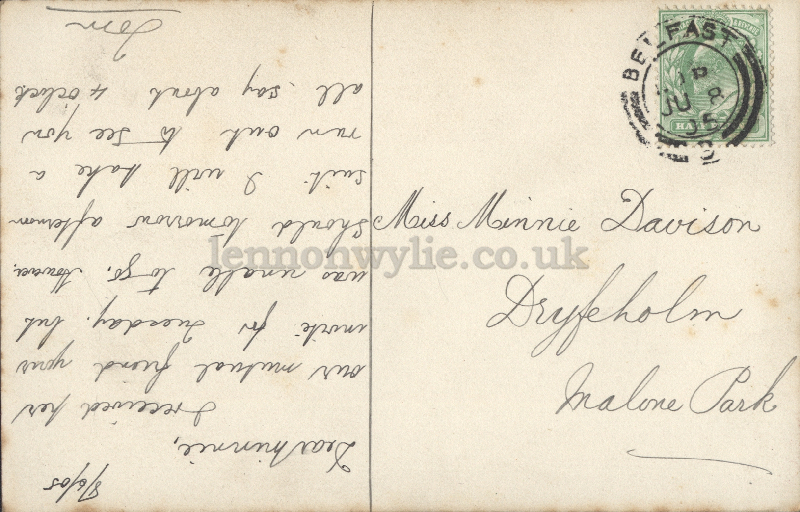 8/6/05
Dear Minnie,
I received her
our mutual friend your
invite for Tuesday. but
was unable to go. However
should tomorrow afternoon
suit I will take a
run out to see you
all say about 4 o'clock
Tom
BELFAST
JU 8
05
Miss Minnie Davison
Dryfeholm
Malone Park
lennonwylie.co.uk